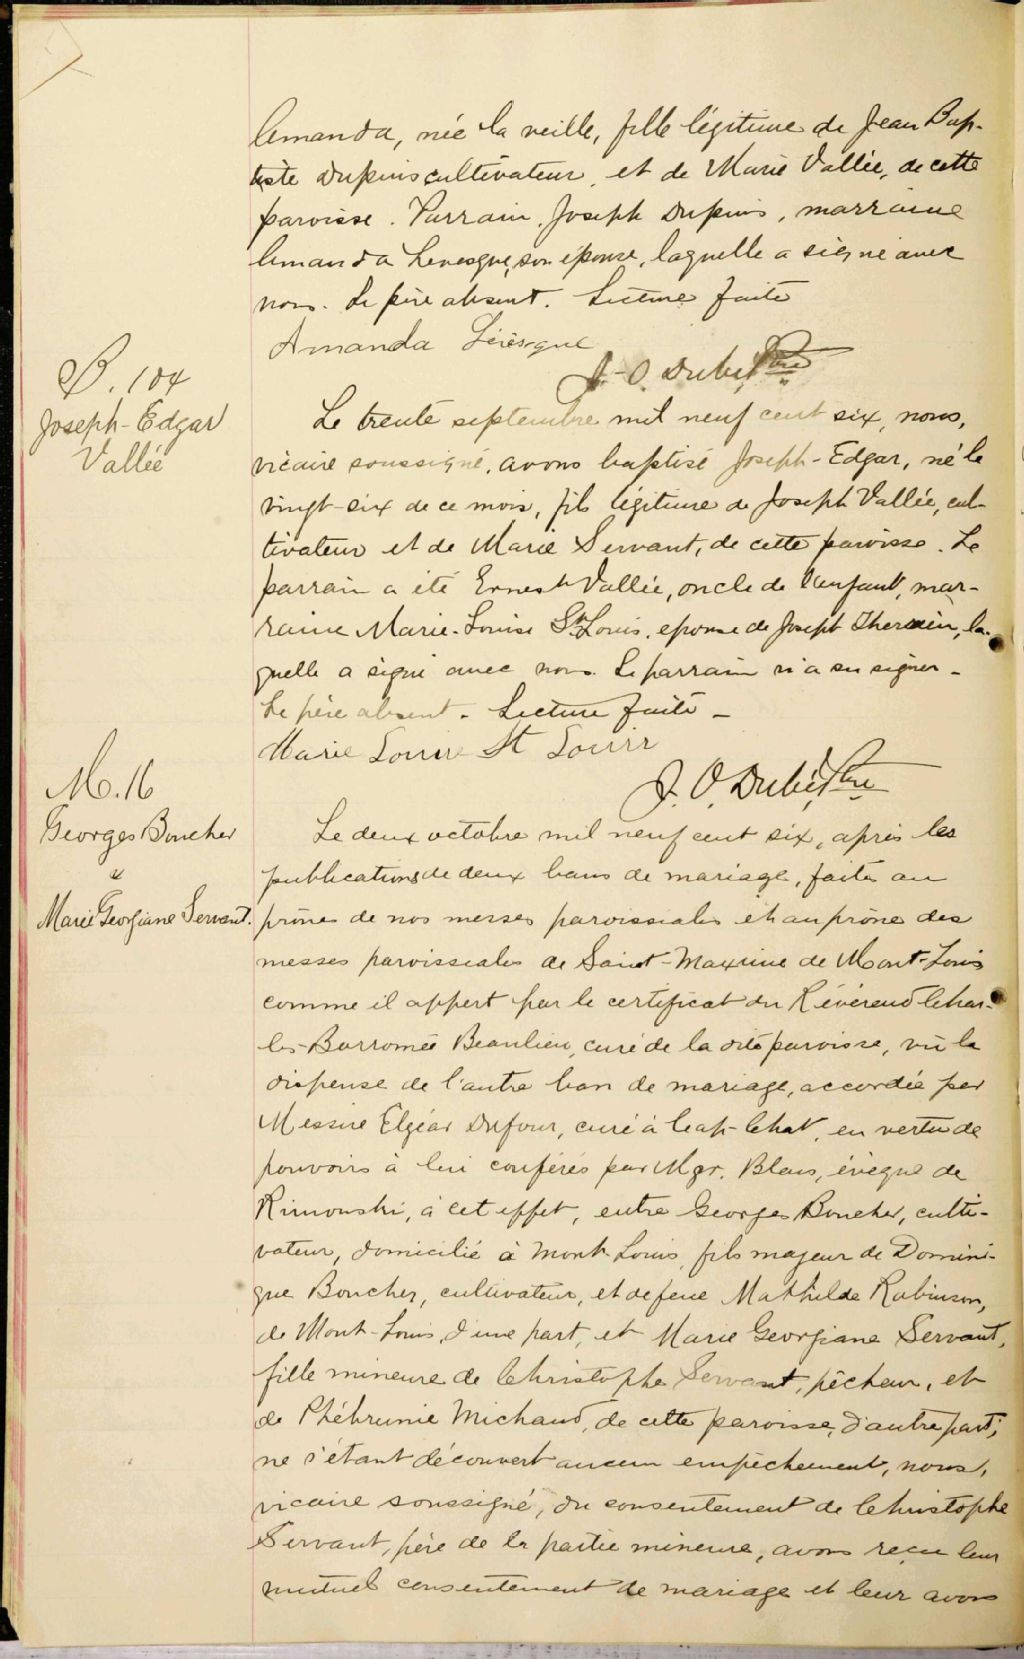 Amanda, née la veille, fille légitime de Jean Bap-
tiste Dupuis cultivateur, et de Marie Vallée, de cette
paroisse. Parrain, Joseph Dupuis, marraine
Amanda Levesque, son épouse, laquelle a signé avec
nous. Le père absent. Lecture faite
Amanda Lévesque
J.-O. Dubé, Ptre
B. 104
Joseph-Edgar
Vallée
Le trente septembre mil neuf cent six, nous,
vicaire soussigné, avons baptisé Joseph-Edgar, né le
vingt-six de ce mois, fils légitime de Joseph Vallée, cul-
tivateur et de Marie Servant, de cette paroisse. Le
parrain a été Ernest Vallée, oncle de l'enfant, mar-
raine Marie-Louise St Louis, épouse de Joseph Therrien, la-
quelle a signé avec nous. Le parrain n'a su signer -
Le père absent. Lecture faite -
Marie Louise St Louis
J. O. Dubé, Ptre
M. 16
Georges Boucher
&
Marie Georgiane Servant.
Le deux octobre mil neuf cent six, après les
publications de deux bans de mariage, faites au
prônes de nos messes paroissiales et au prône des
messes paroissiales de Saint-Maxime de Mont-Louis
comme il appert par le certificat du Révérend Char-
les-Borromée Beaulieu, curé de la dite paroisse, vu la
dispense de l'autre ban de mariage, accordée par
Messire Elgéar Dufour, curé à Cap-Chat, en vertu de
pouvoirs à lui conférés par Mgr. Blais, évêque de
Rimouski, à cet effet, entre Georges Boucher, culti-
vateur, domicilié à Mont-Louis, fils majeur de Domini-
que Boucher, cultivateur, et de feue Mathilde Robinson,
de Mont-Louis, d'une part, et Marie Georgiane Servant,
fille mineure de Christophe Servant, pêcheur, et
de Phébrunie Michaud, de cette paroisse, d'autre part;
ne s'étant découvert aucun empêchement, nous,
vicaire soussigné, du consentement de Christophe
Servant, père de la partie mineure, avons reçu leur
mutuel consentement de mariage et leur avons